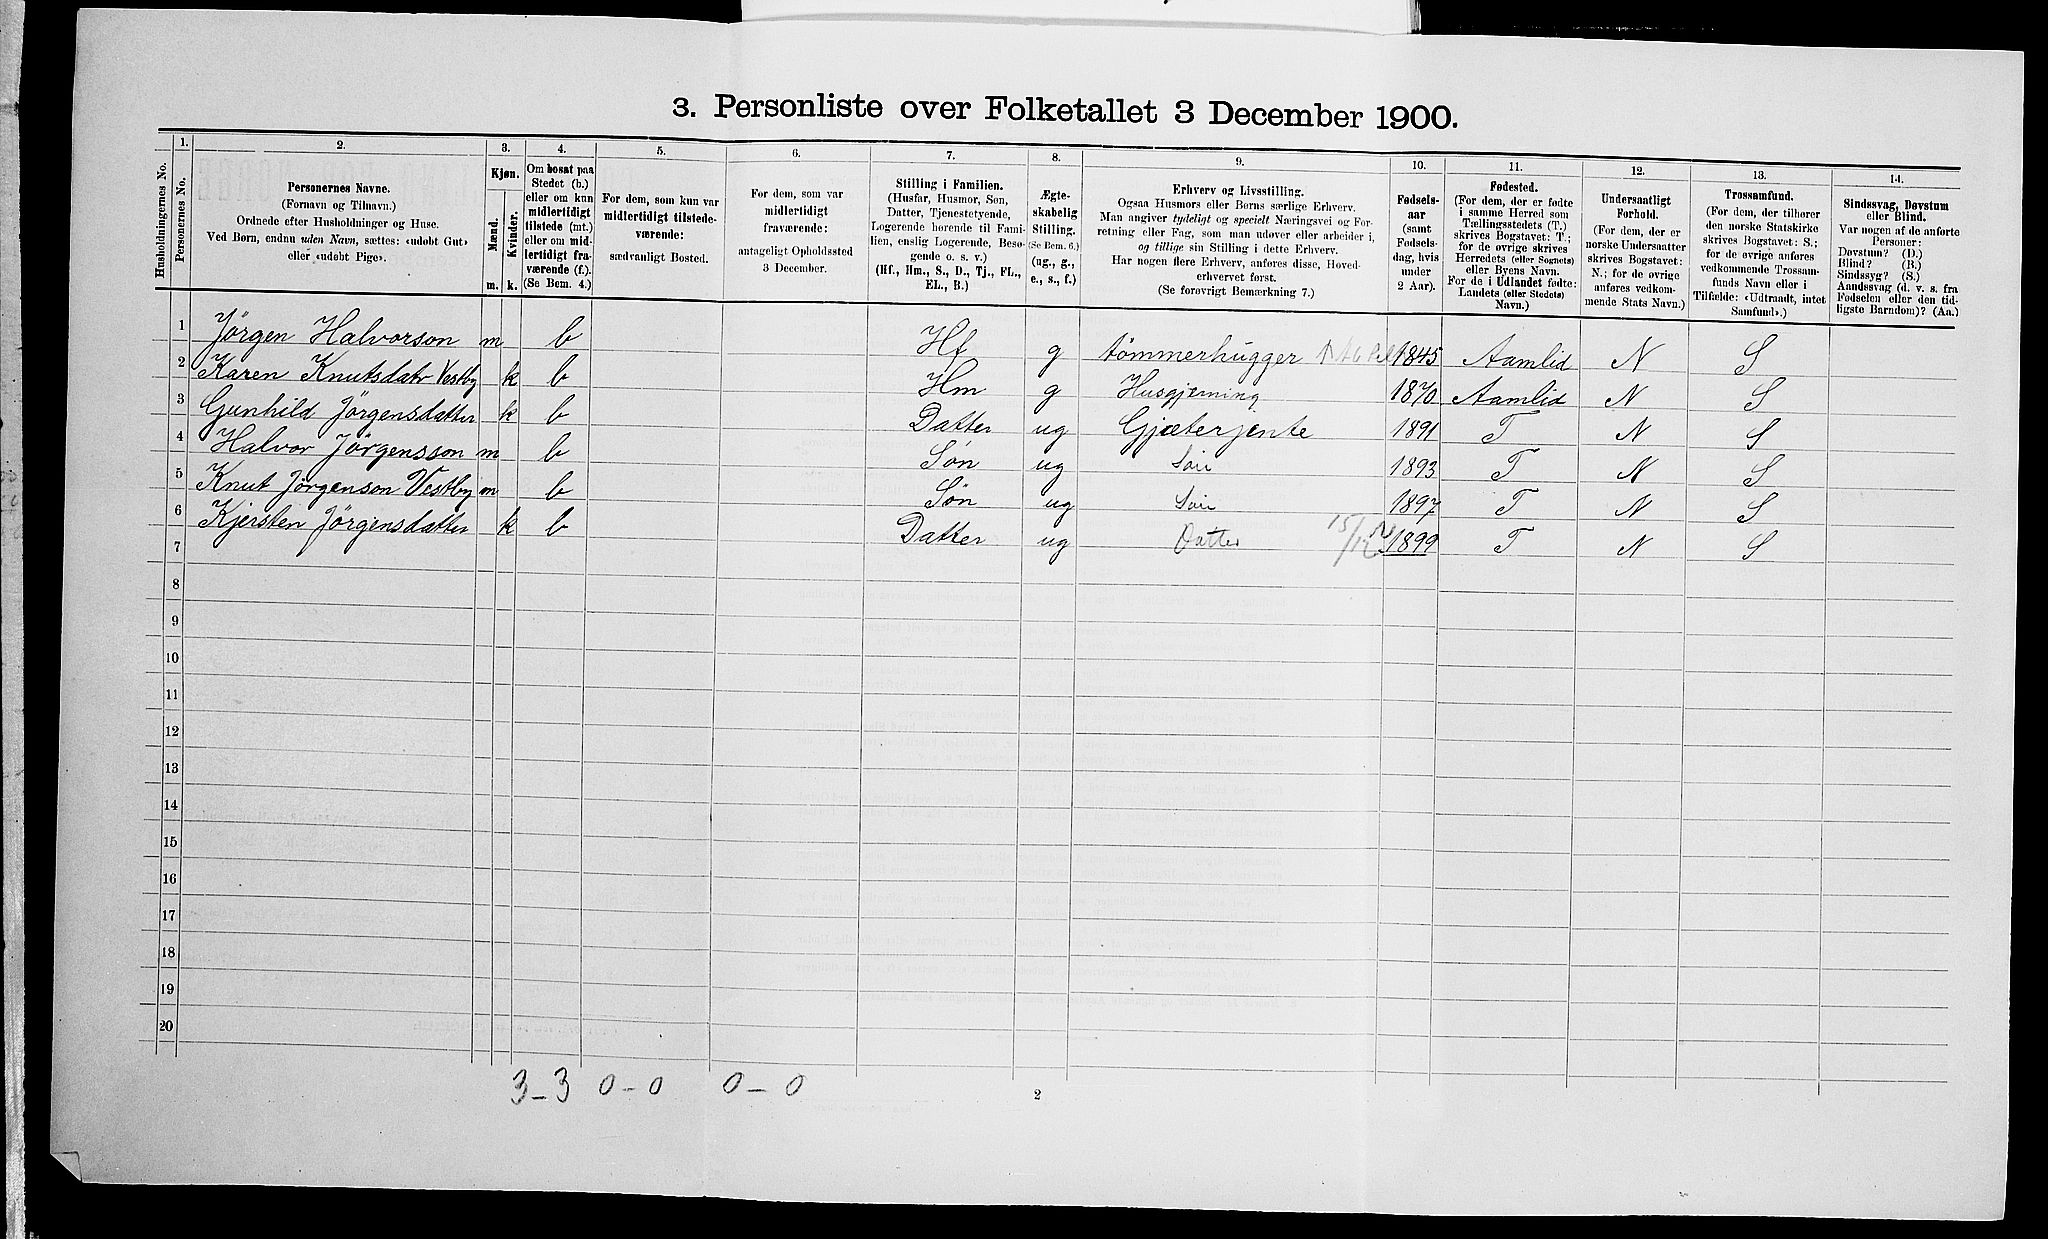 3. Personliste over Folketallet 3 December 1900.
1. 2. 3. 4. 5. 6. 7. 8. 9. 10. 11. 12. 13. 14.
Husholdningernes No.
Personernes No.
Personernes Navne.
(Fornavn og Tilnavn.)
Ordnede efter Husholdninger og Huse.
Ved Børn, endnu uden Navn, sættes: «udøbt Gut»
eller «udøbt Pige».
Kjøn.
Mænd.
Kvinder.
m. k.
Om bosat paa
Stedet (b.)
eller om kun
midlertidigt
tilstede (mt.)
eller om mid-
lertidigt fra-
værende (f.).
(Se Bem. 4.)
For dem, som kun var
midlertidigt tilstede-
værende:
sædvanligt Bosted.
For dem, som var
midlertidigt
fraværende:
antageligt Opholdssted
3 December.
Stilling i Familien.
(Husfar, Husmor, Søn,
Datter, Tjenestetyende,
Logerende hørende til Fami-
lien, enslig Logerende, Besø-
gende o. s. v.)
(Hf., Hm., S., D., Tj., FL.,
EL., B.)
Ægte-
skabelig
Stilling.
(Se Bem. 6.)
(ug., g.,
e., s., f.)
Erhverv og Livsstilling.
Ogsaa Husmors eller Børns særlige Erhverv.
Man angiver tydeligt og specielt Næringsvei og For-
retning eller Fag, som man udøver eller arbeider i,
og tillige sin Stilling i dette Erhverv.
Har nogen flere Erhverv, anføres disse, Hoved-
erhvervet først.
(Se forøvrigt Bemærkning 7.)
Fødsels-
aar
(samt
Fødsels-
dag, hvis
under
2 Aar).
Fødested.
(For dem, der er fødte
i samme Herred som
Tællingsstedets (T.)
skrives Bogstavet: T.;
for de øvrige skrives
Herredets (eller Sognets)
eller Byens Navn.
For de i Udlandet fødte:
Landets (eller Stedets)
Navn.)
Undersaatligt
Forhold.
(For dem, der er
norske Undersaatter
skrives Bogstavet:
N.; for de øvrige
anføres vedkom-
mende Stats Navn.)
Trossamfund.
(For dem, der tilhører
den norske Statskirke
skrives Bogstavet: S.;
for de øvrige anføres
vedkommende Trossam-
funds Navn eller i
Tilfælde: «Udtraadt, intet
Samfund».)
Sindssvag, Døvstum
eller Blind.
Var nogen af de anførte
Personer:
Døvstum? (D.)
Blind? (B.)
Sindssyg? (S.)
Aandssvag (d. v. s. fra
Fødselen eller den tid-
ligste Barndom)? (Aa.)
1 Jörgen Halvorson m b Hf g tömmerhugger 1845 Aamlid N S
2 Karen Knutsdatr Vestby k b Hm g Husgjerning 1870 Aamlid N S
3 Gunhild Jörgensdatter k b Datter ug Gjæterjente 1891 T N S
4 Halvor Jörgensson m b Søn ug 1893 T N S
5 Knut Jørgenson Vestby m b Søn ug 1897 T N S
6 Kjersten Jörgensdatter k b Datter ug Datter 15/12 1899 T N S
7
8
9
10
11
12
13
14
15
16
17
18
19
20
3-3 0-0 0-0
2